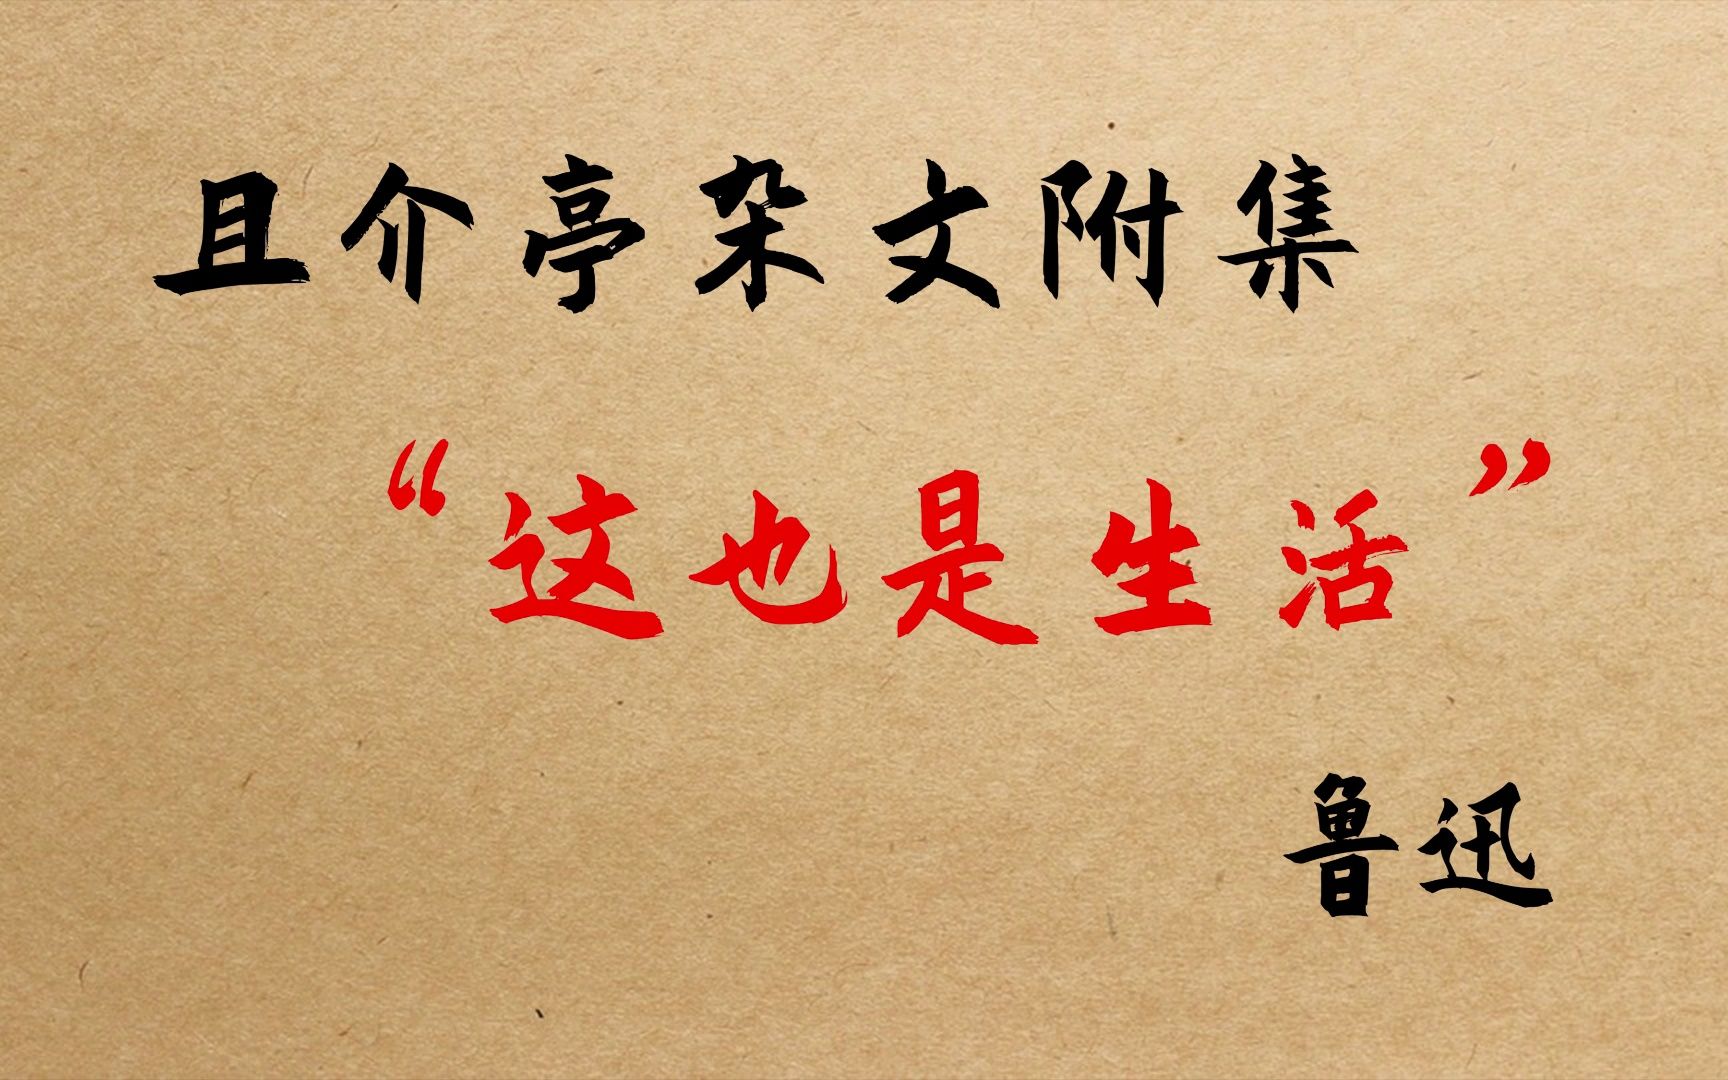 且介亭杂文附集
“这也是生活”
鲁迅